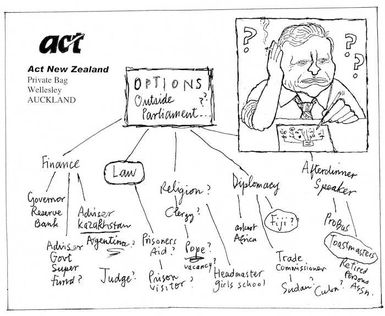 act
Act New Zealand
Private Bag
Wellesley
AUCKLAND
OPTIONS
Outside
Parliament...?
? ? ? ?
Finance
Law
Religion?
Clergy?
Diplomacy
Afterdinner
Speaker
Governor
Reserve
Bank
Adviser
Kazakhstan
Argentina?
Adviser
Govt
Super
Fund?
Prisoners
Aid?
Judge?
Prison
visitor?
Pope?
vacancy?
Headmaster
girls school
Africa
Fiji?
Trade
Commissioner
Sudan?
Cuba?
Probus
Toastmasters
Retired
Persons
Assn.